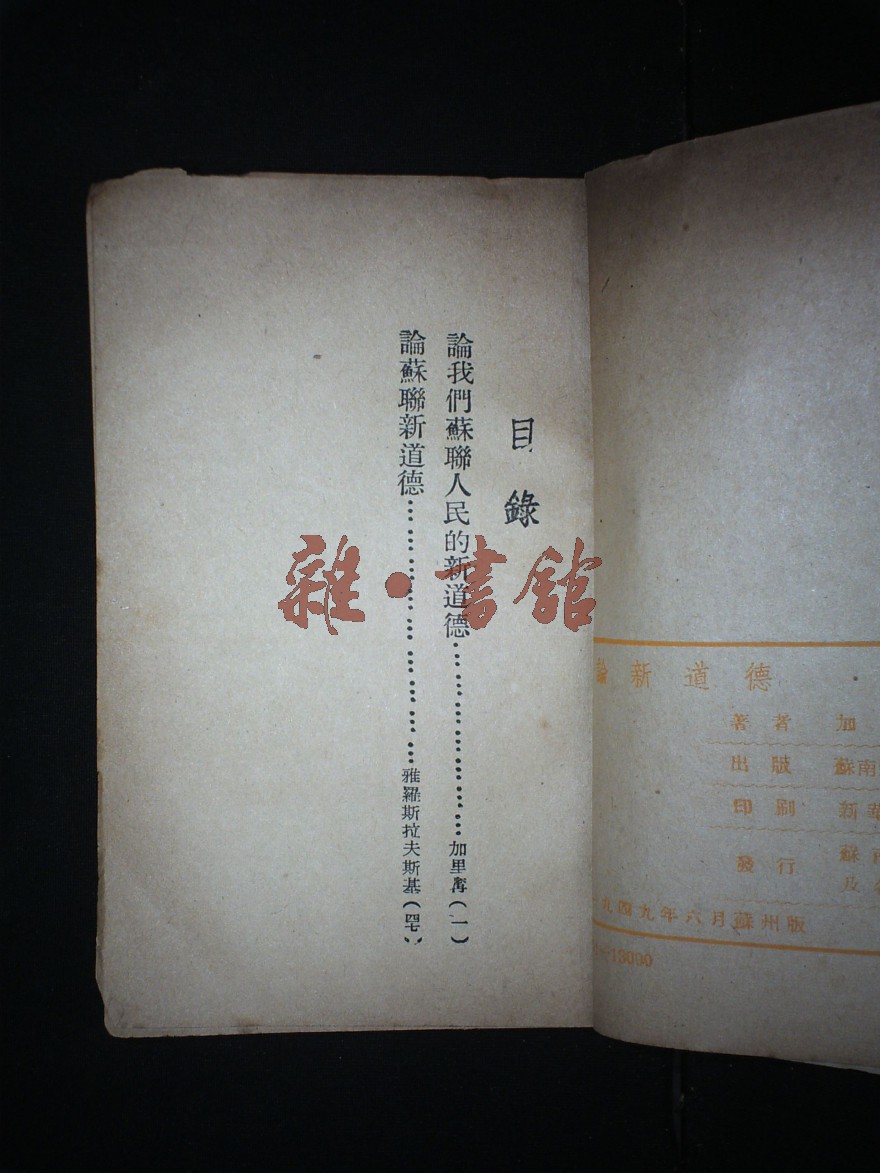 論新道德
著者 加
出版 蘇南
印刷 新華
發行 蘇南
及
九四九年六月蘇州版
—13000
目錄
論我們蘇聯人民的新道德…………………加里寧(一)
論蘇聯新道德…………………………雅羅斯拉夫斯基(四七)
雜·書館